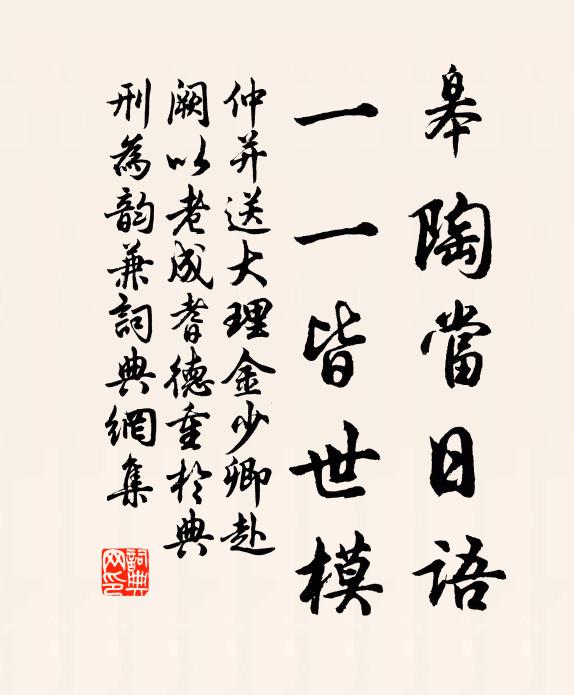 皋陶當日語
一一皆世模
仲并送大理金少卿赴
闕以老成耆德重於典
刑為韵兼詞典網集
詞典
网印